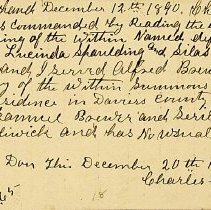 hand December 12th 1890.
as commanded by Reading the
ing of the within Named
Lucinda Spaulding and Silas
and I served Alfred Brew
of the within summons
sidence in Daviess County
Samuel Brewer and Serv
liwick and has No usual
Don This December 20th 1
Charlies